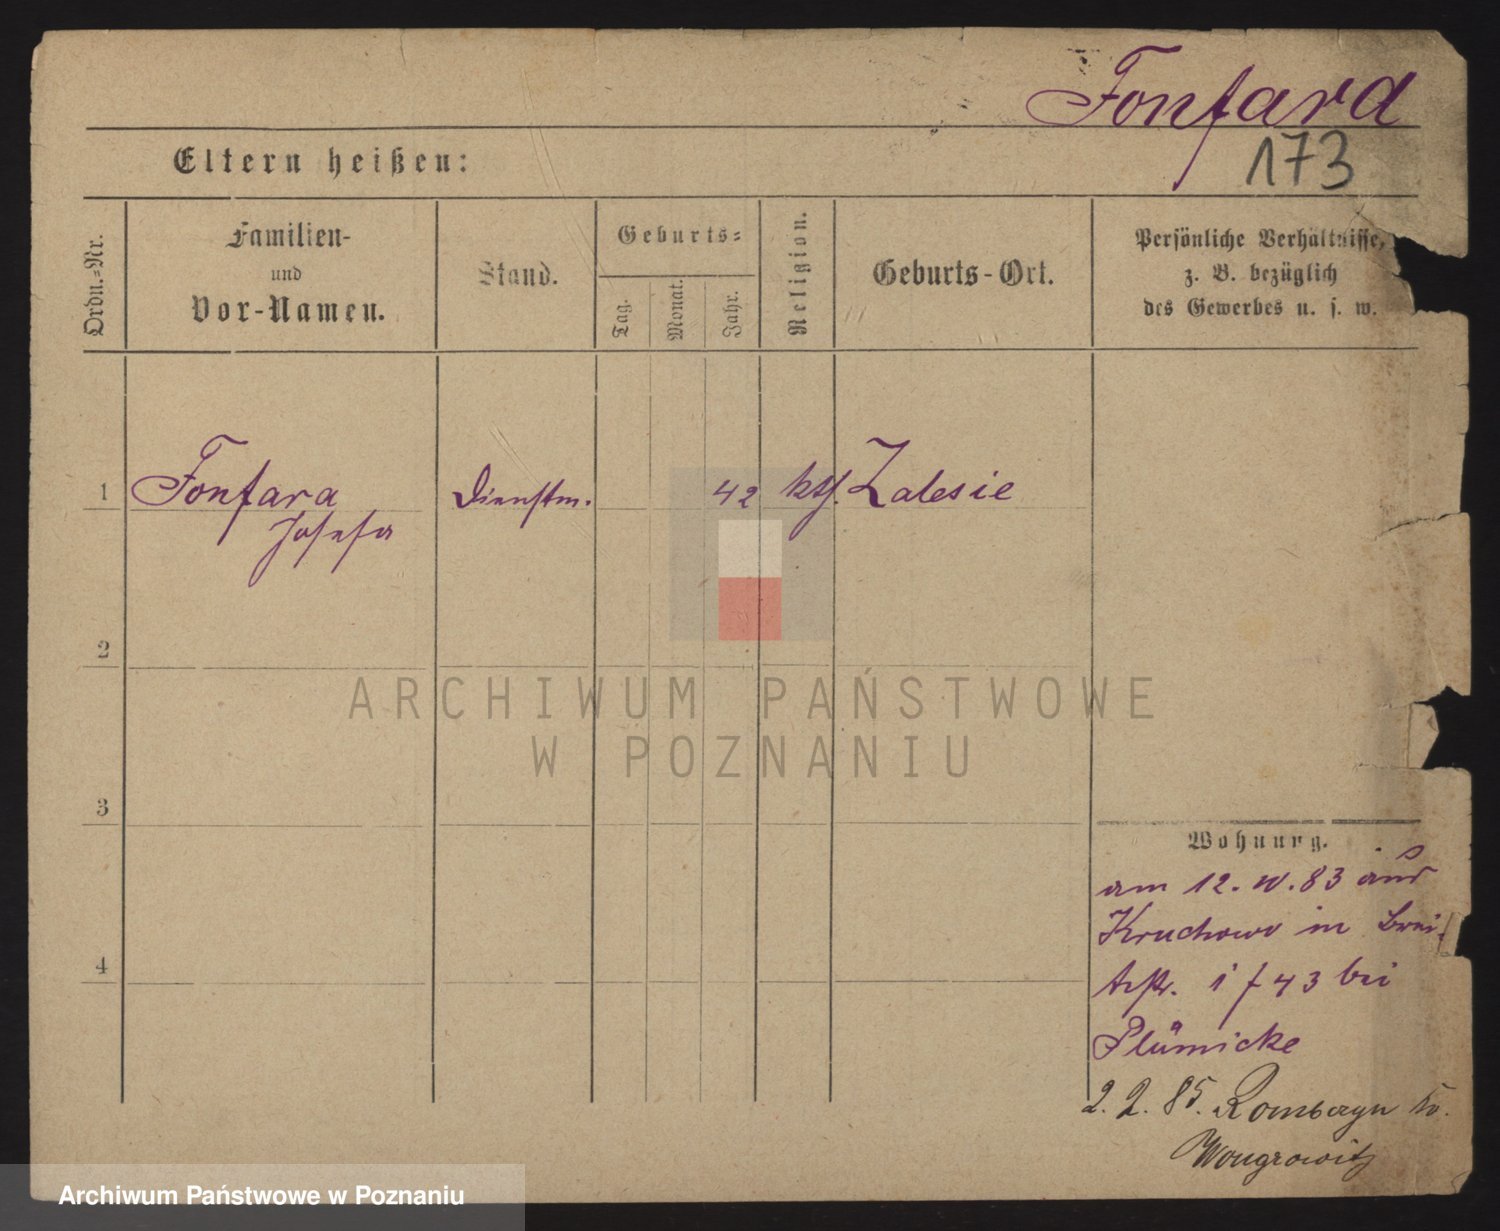 Fonfard
173
Eltern heißen:
Ordn.=Nr.
Familien-
und
Vor-Namen.
Stand.
Geburts=
Tag.
Monat.
Jahr.
Religion.
Geburts-Ort.
Persönliche Verhältnisse,
z. B. bezüglich
des Gewerbes u. s. w.
1 Fonfara Dienstm. 42 kth. Zalesie
Josefa
2
ARCHIWUM PAŃSTWOWE
W POZNANIU
3
Wohnung.
am 12. IV. 83 aus
Kruchowo in Brei-
testr. 1 f 43 bei
Plümicke
4
2. 2. 85.
Wongrowitz
Archiwum Państwowe w Poznaniu